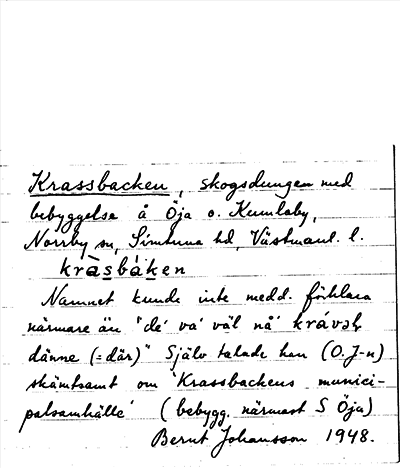 Krassbacken, skogsdungen med
bebyggelse å Öja o. Kumlaby,
Norrby sn, Simtuna hd, Västmanl. l.
kràsbák̀en
Namnet kunde inte medd. förklara
närmare än "de' va' väl nå' krávəl,
dänne (=där)" Själv talade han (O. J-n)
skämtsamt om 'Krassbackens munici-
palsamhälle' (bebygg. närmast S Öja)
Bernt Johansson 1948.